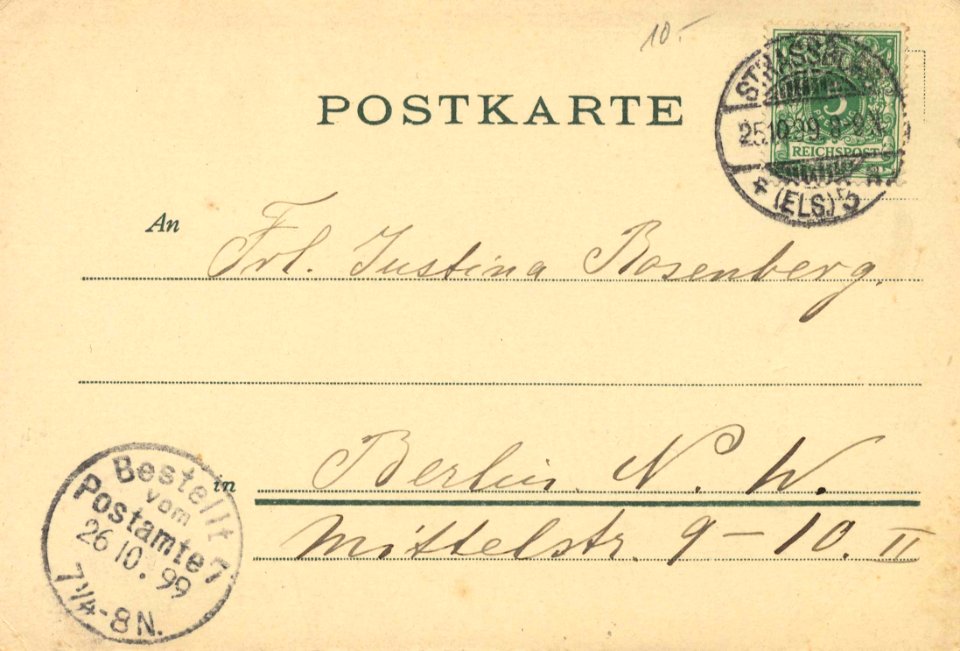 10.-
POSTKARTE
STRASSBURG
25.10.99. 8-9N.
* (ELS) 5
5
REICHSPOST
An
Frl. Justina Rosenberg,
Berlin. N. W.
in
Mittelstr. 9 – 10. II
Bestellt
vom
Postamte 7
26 10. 99
7 1/4-8 N.